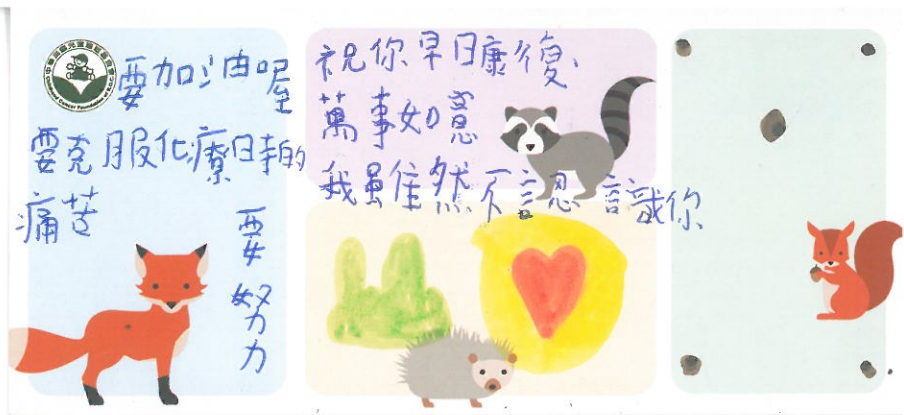 要加油喔
要克服化療時的
痛苦
要努力
祝你早日康復、
萬事如意
我雖然不認識你